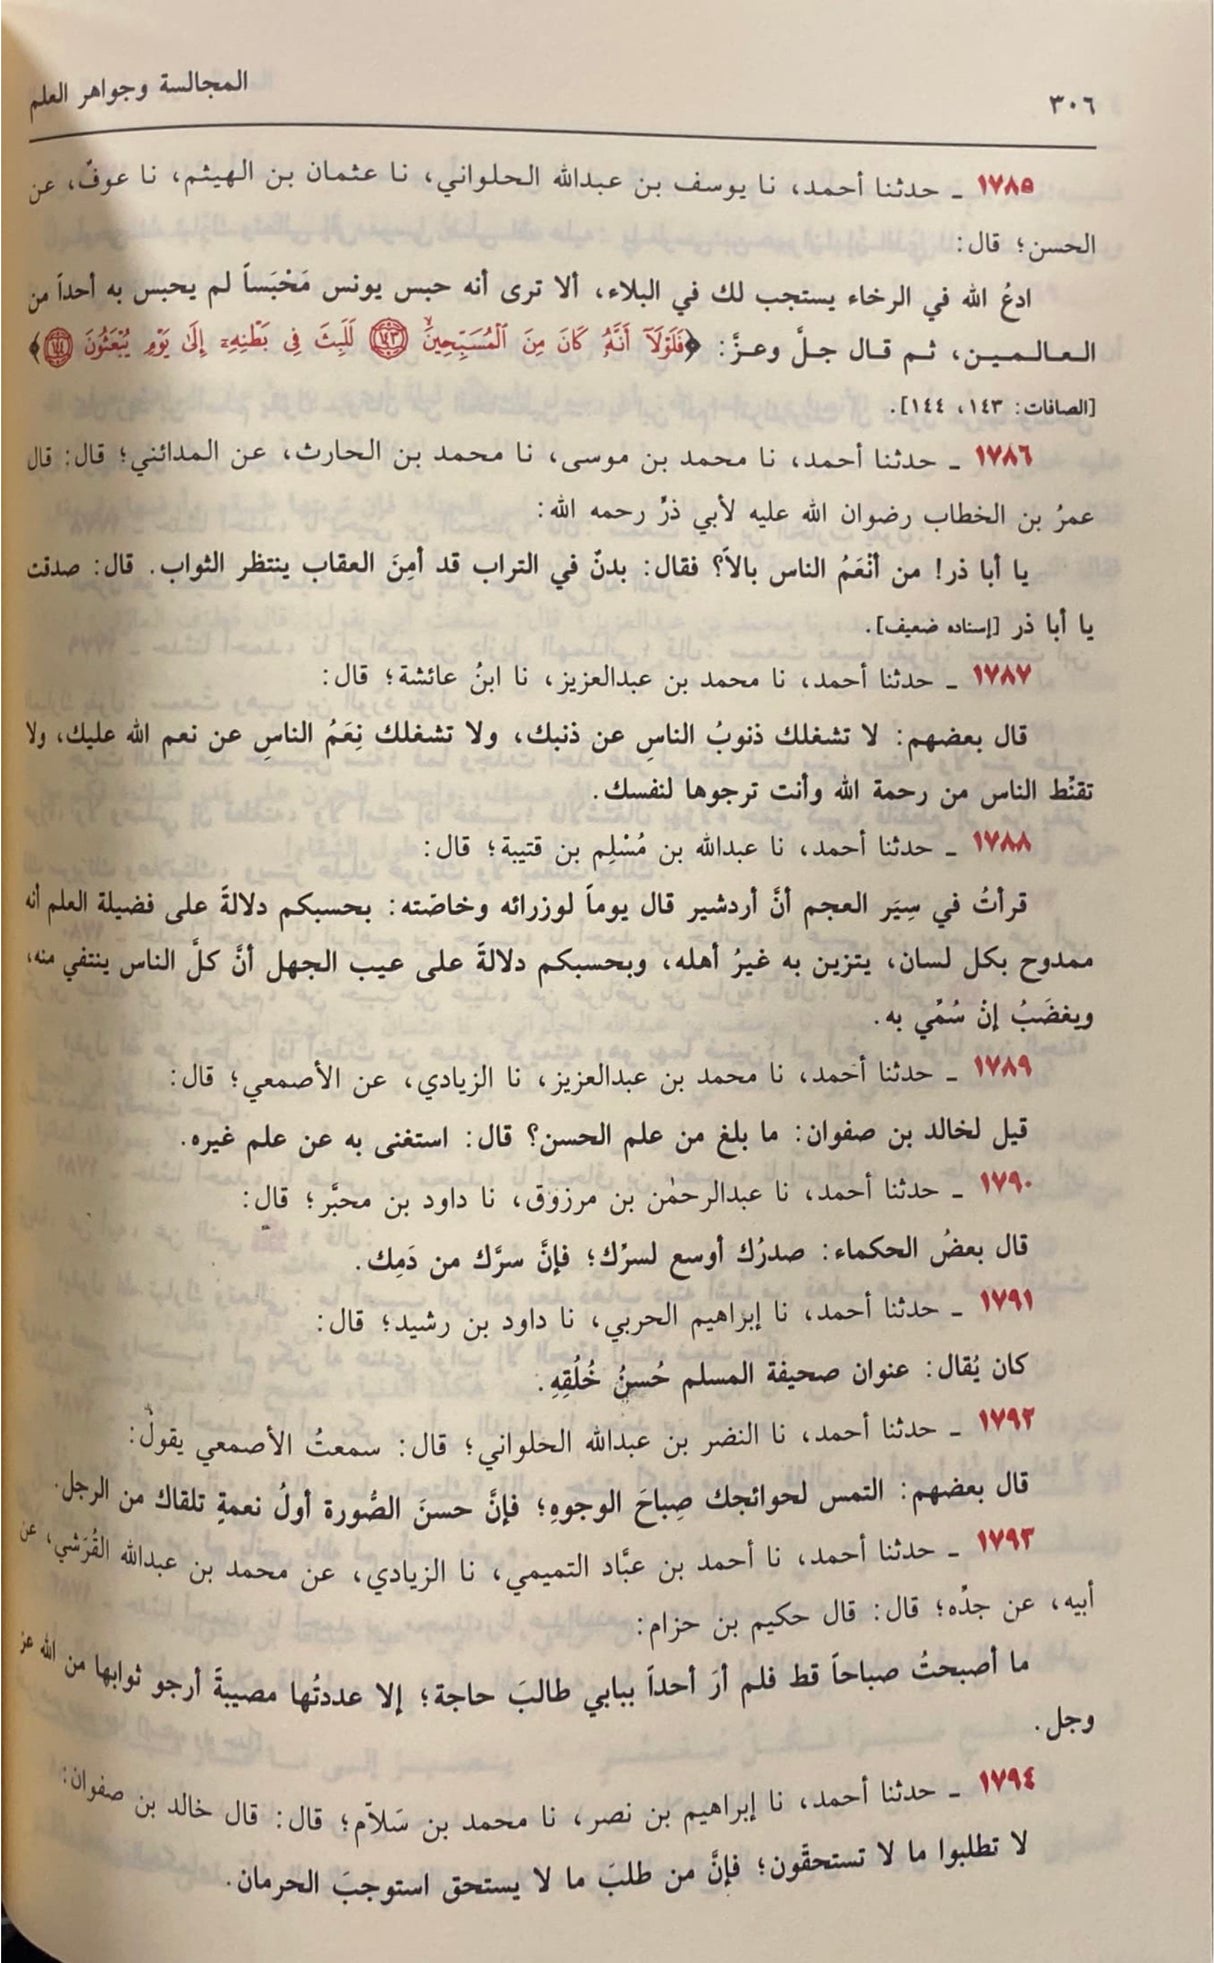 المجالسة وجواهر العلم
٣٠٦
١٧٨٥ ـ حدثنا أحمد، نا يوسف بن عبدالله الحلواني، نا عثمان بن الهيثم، نا عوفٌ، عن
الحسن؛ قال:
ادعُ الله في الرخاء يستجب لك في البلاء، ألا ترى أنه حبس يونس مَحْبَساً لم يحبس به أحداً من
العالمين، ثم قال جلَّ وعزَّ: ﴿فَلَوْلَآ أَنَّهُۥ كَانَ مِنَ ٱلْمُسَبِّحِينَ ۝١٤٣ لَلَبِثَ فِى بَطْنِهِۦٓ إِلَىٰ يَوْمِ يُبْعَثُونَ ۝١٤٤﴾
[الصافات: ١٤٣، ١٤٤].
١٧٨٦ ـ حدثنا أحمد، نا محمد بن موسى، نا محمد بن الحارث، عن المدائني؛ قال: قال
عمرُ بن الخطاب رضوان الله عليه لأبي ذرٍّ رحمه الله:
يا أبا ذر! من أنْعَمُ الناس بالاً؟ فقال: بدنٌ في التراب قد أمِنَ العقاب ينتظر الثواب. قال: صدقت
يا أبا ذر [إسناده ضعيف].
١٧٨٧ ـ حدثنا أحمد، نا محمد بن عبدالعزيز، نا ابنُ عائشة؛ قال:
قال بعضهم: لا تشغلك ذنوبُ الناسِ عن ذنبك، ولا تشغلك نِعَمُ الناسِ عن نعم الله عليك، ولا
تقنّط الناس من رحمة الله وأنت ترجوها لنفسك.
١٧٨٨ ـ حدثنا أحمد، نا عبدالله بن مُسْلِم بن قتيبة؛ قال:
قرأتُ في سِيَر العجم أنَّ أردشير قال يوماً لوزرائه وخاصّته: بحسبكم دلالةً على فضيلة العلم أنه
ممدوح بكل لسان، يتزين به غيرُ أهله، وبحسبكم دلالةً على عيب الجهل أنَّ كلَّ الناس ينتفي منه،
ويغضَبُ إنْ سُمِّي به.
١٧٨٩ ـ حدثنا أحمد، نا محمد بن عبدالعزيز، نا الزيادي، عن الأصمعي؛ قال:
قيل لخالد بن صفوان: ما بلغ من علم الحسن؟ قال: استغنى به عن علم غيره.
١٧٩٠ ـ حدثنا أحمد، نا عبدالرحمٰن بن مرزوق، نا داود بن محبَّر؛ قال:
قال بعضُ الحكماء: صدرُك أوسع لسرِّك؛ فإنَّ سرَّك من دَمِك.
١٧٩١ ـ حدثنا أحمد، نا إبراهيم الحربي، نا داود بن رشيد؛ قال:
كان يُقال: عنوان صحيفة المسلم حُسنُ خُلُقِهِ.
١٧٩٢ ـ حدثنا أحمد، نا النضر بن عبدالله الحلواني؛ قال: سمعتُ الأصمعي يقولُ:
قال بعضهم: التمس لحوائجك صِباحَ الوجوهِ؛ فإنَّ حسنَ الصُّورة أولُ نعمةٍ تلقاك من الرجل.
١٧٩٣ ـ حدثنا أحمد، نا أحمد بن عبَّاد التميمي، نا الزيادي، عن محمد بن عبدالله القُرَشي، عن
أبيه، عن جدِّه؛ قال: قال حكيم بن حزام:
ما أصبحتُ صباحاً قط فلم أرَ أحداً ببابي طالبَ حاجة؛ إلا عددتُها مصيبةً أرجو ثوابها من الله عز
وجل.
١٧٩٤ ـ حدثنا أحمد، نا إبراهيم بن نصر، نا محمد بن سَلاَّم؛ قال: قال خالد بن صفوان:
لا تطلبوا ما لا تستحقّون؛ فإنَّ من طلبَ ما لا يستحق استوجبَ الحرمان.